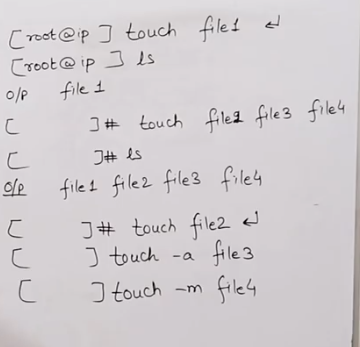 [root@ip ] touch file1 ↵
[root@ip ] ls
O/P file 1
[ ]# touch file2 file3 file4
[ ]# ls
O/P file1 file2 file3 file4
[ ]# touch file2 ↵
[ ] touch -a file3
[ ] touch -m file4